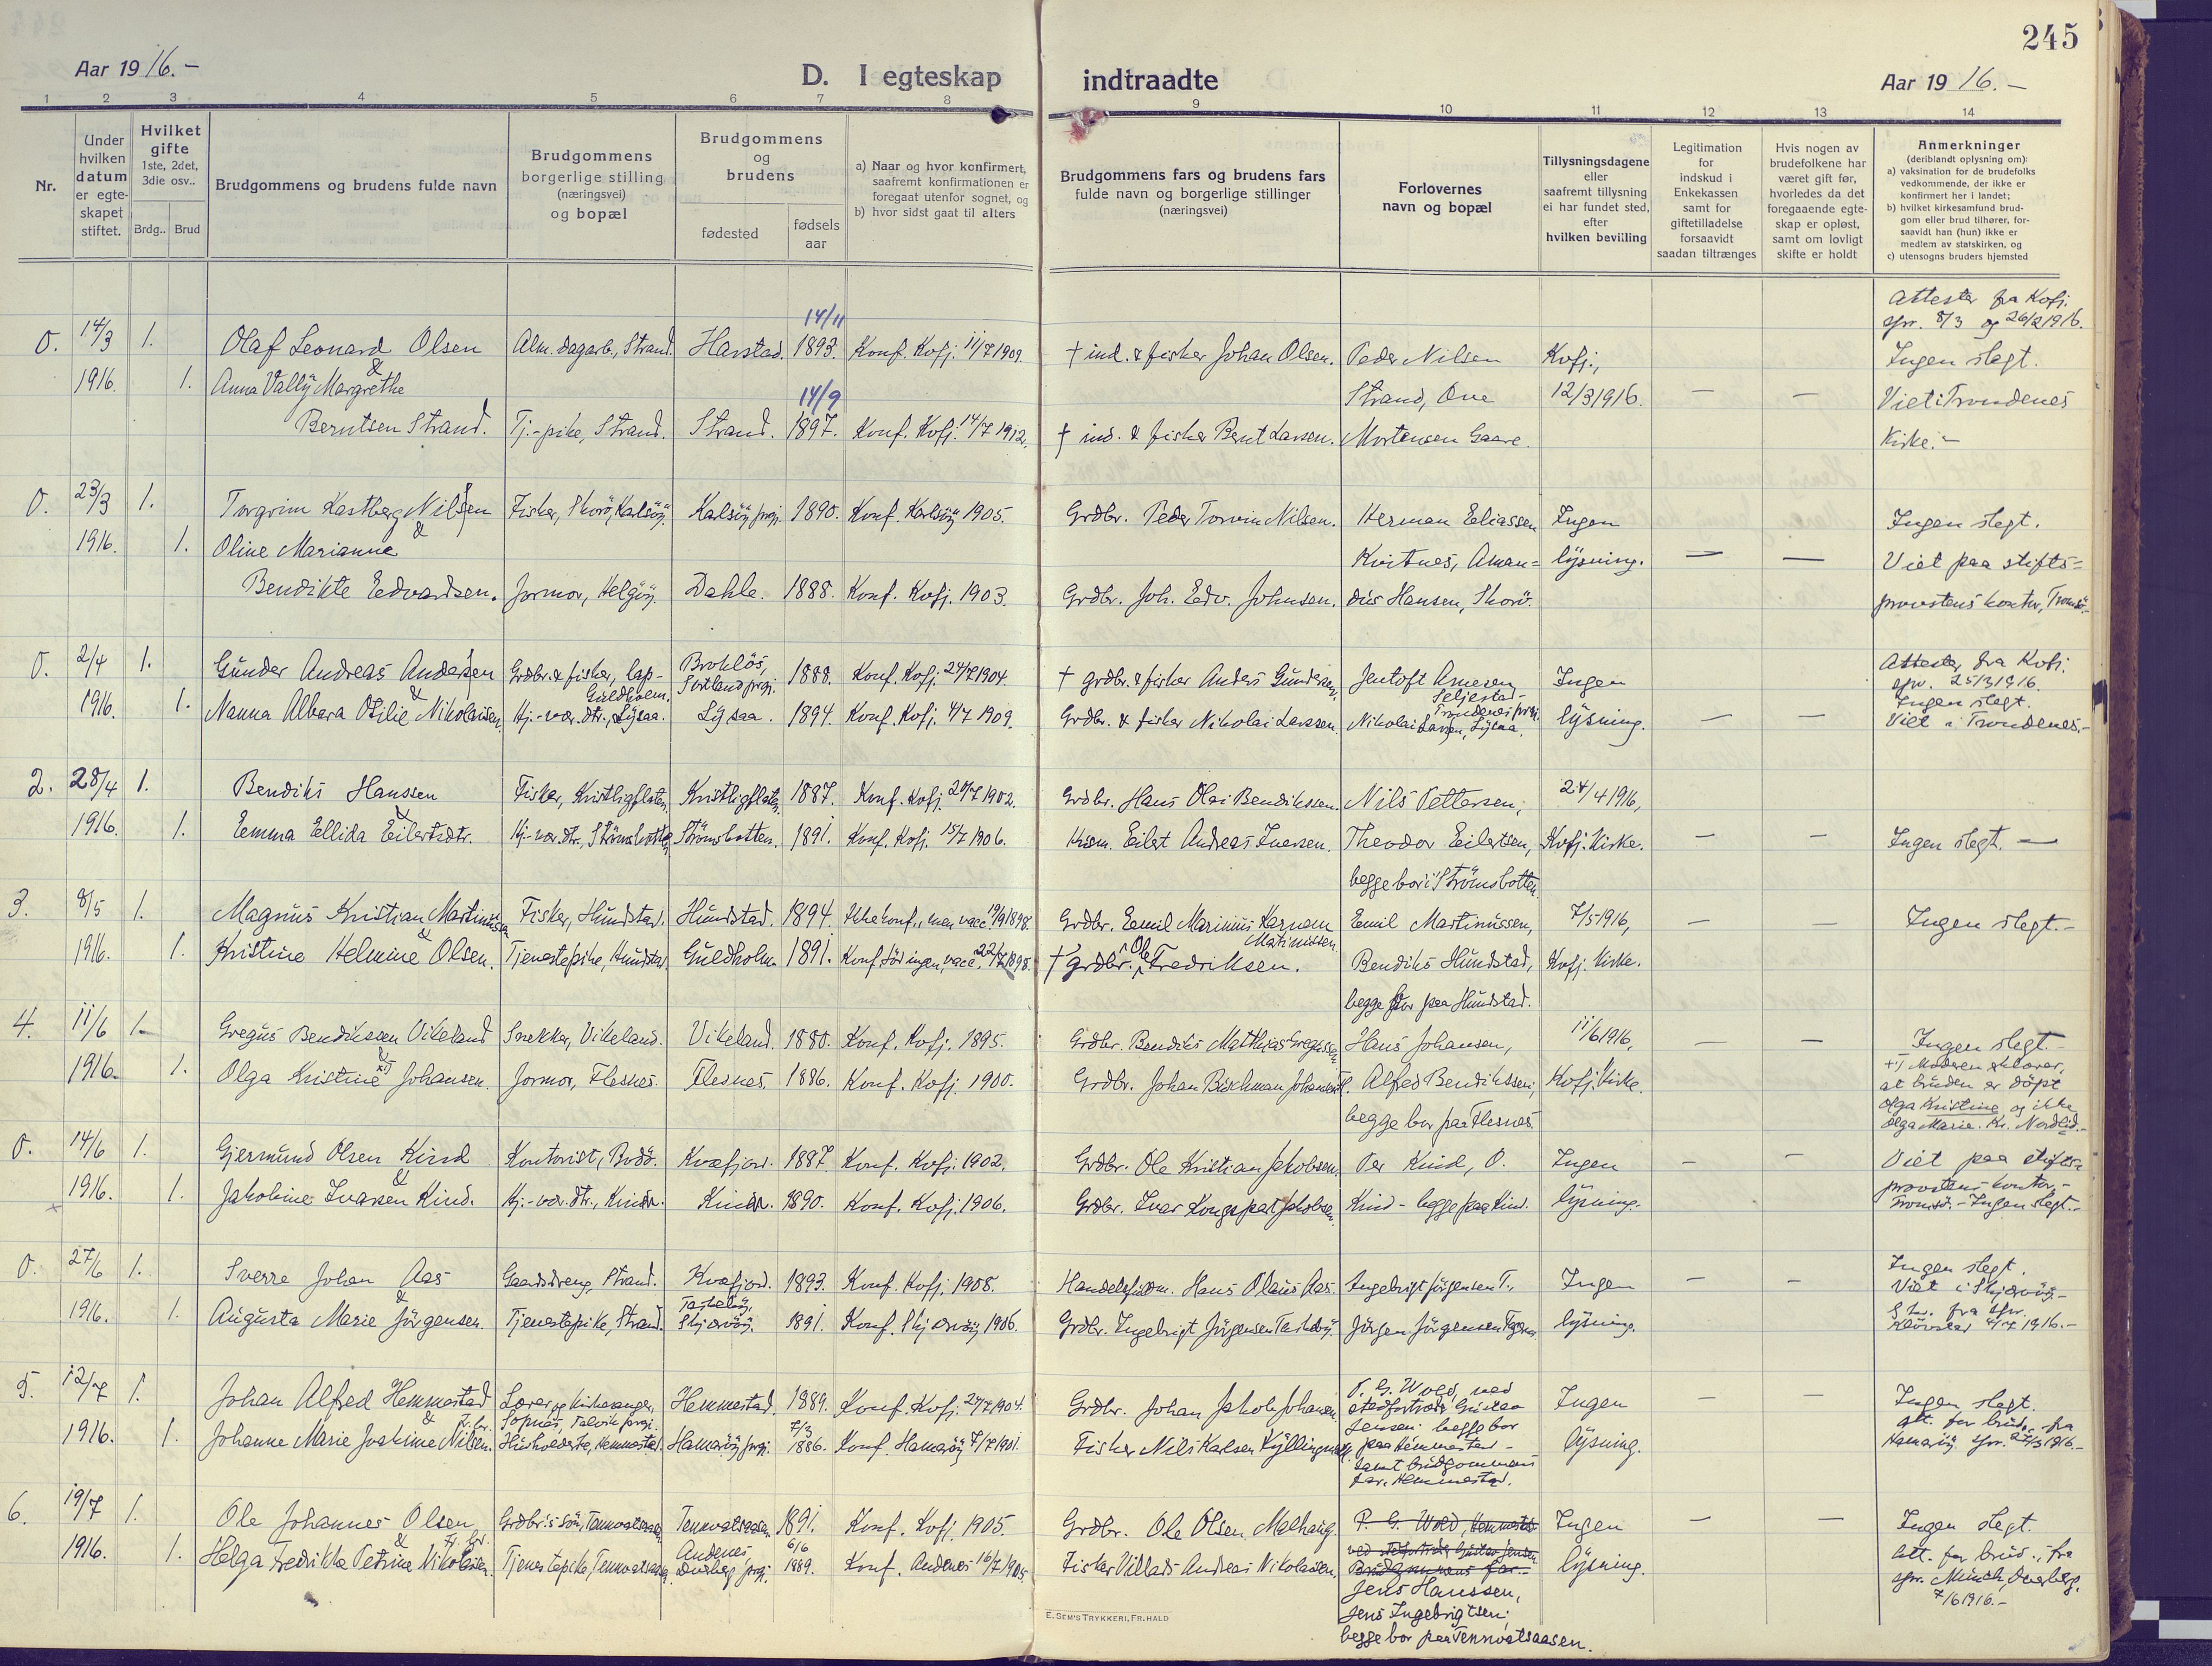 245
Aar 1916.-
D. I egteskap
indtraadte
Aar 1916.-
1 2 3 4 5 6 7 8 9 10 11 12 13 14
Nr.
Under hvilken datum er egte-skapet stiftet.
Hvilket gifte
1ste, 2det, 3die osv..
Brdg.. Brud
Brudgommens og brudens fulde navn
Brudgommens borgerlige stilling (næringsvei) og bopæl
Brudgommens og brudens
fødested
fødsels aar
a) Naar og hvor konfirmert, saafremt konfirmationen er foregaat utenfor sognet, og
b) hvor sidst gaat til alters
Brudgommens fars og brudens fars fulde navn og borgerlige stillinger (næringsvei)
Forlovernes navn og bopæl
Tillysningsdagene eller saafremt tillysning ei har fundet sted, efter hvilken bevilling
Legitimation for indskud i Enkekassen samt for giftetilladelse forsaavidt saadan tiltrænges
Hvis nogen av brudefolkene har været gift før, hvorledes da det foregaaende egte-skap er opløst, samt om lovligt skifte er holdt
Anmerkninger (deriblandt oplysning om):
a) vaksination for de brudefolks vedkommende, der ikke er konfirmert her i landet;
b) hvilket kirkesamfund brud-gom eller brud tilhører, for-saavidt han (hun) ikke er medlem av statskirken, og
c) utensogns bruders hjemsted
0. 14/3 1. Olaf Leonard Olsen Alm. dagarb., Strand. Harstad. 14/11 1893. Konf. Kofj. 11/7 1909. † ind. & fisker Johan Olsen. Peder Nilsen Kofj., Attester fra Kofj. spr. 8/3 og 26/2 1916. Ingen slegt.
1916. 1. & Anna Vally Margrethe Strand, Ove 12/3 1916. — — Viet i Trondenes
Berntsen Strand. Tj.-pike, Strand. Strand. 14/9 1897. Konf. Kofj. 14/7 1912. † ind. & fisker Bernt Larsen. Mortensen Gaare. Kirke.-
0. 23/3 1. Torgrim Kastberg Nilsen Fisker, Skorö, Karlsöy. Karlsöy prgj. 1890. Konf. Karlsöy 1905. Grdbr. Peder Torvin Nilsen. Herman Eeliassen Ingen Ingen slegt.
1916. 1. & Oline Marianne Kvitnes, Aman= lysning. — — Viet paa stifts=
Bendikte Eedvardsen. Jormor, Helgöy. Dahle. 1888. Konf. Kofj. 1903. Grdbr. Joh. Edv. Johnsen. dus Hansen, Skorö. provstens kontor, Tromsö.-
0. 2/4 1. Gunder Andreas Andersen Grdbr. & fisker, Lap-Guldholm. Brokløs, Sortland prgj. 1888. Konf. Kofj. 24/7 1904. † grdbr. & fisker Anders Gundersen. Jentoft Arnesen Seljestad- Trondenes prgj. Ingen Attester fra Kofj. spr. 25/3 1916. Ingen slegt.
1916. 1. & Nanna Albera Otilie Nikolaisen Kj.-vær. dtr., Lysaa. Lysaa. 1894. Konf. Kofj. 4/7 1909. Grdbr. & fisker Nikolai Larssen. Nikolai Larsen, Lysaa. lysning. — — Viet i Trondenes.-
2. 28/4 1. Bendiks Hanssen Fisker, Kristligflaten Kristligflaten. 1887. Konf. Kofj. 20/7 1902. Grdbr. Hans Olai Bendikssen. Nils Pettersen, 24/4 1916,
1916. 1. & Eemma Eellida Eeilertsdtr. Kj.-vær. dtr., Strömsbotten Strömsbotten. 1891. Konf. Kofj. 15/7 1906. Kjøm. Eilert Andreas Iversen. Theodor Eeilertsen, Kofj. Kirke. — — Ingen slegt. —
begge bor i Strömsbotten.
3. 8/5 1. Magnus Kristian Martinussen Fisker, Hundstad. Hundstad. 1894. Ikke konf., men vacc. 19/9 1898. Grdbr. Eemil Marinius Karnom Martinussen Eemil Martinussen, 7/5 1916, — — Ingen slegt.-
1916. 1. & Kristine Helmine Olsen. Tjenestepike, Hundstad. Guldholm. 1891. Konf. vacc. 22/7 1898. † grdbr. Ole Fredriksen. Bendiks Hundstad, Kofj. Kirke.
begge bor paa Hundstad.
4. 11/6 1. Gregus Bendikssen Vikeland Snekker, Vikeland. Vikeland. 1880. Konf. Kofj. 1895. Grdbr. Bendiks Matthias Gregussen Hans Johansen, 11/6 1916, — — Ingen slegt.-
1916. 1. & Olga Kristine Johansen. Jormor, Flesnes. Flesnes. 1886. Konf. Kofj. 1900. Grdbr. Johan Johansen Fl. Alfred Bendikssen, Kofj. Kirke. +) Moderen erklærer, at bruden er döpt
begge bor paa Flesnes. Olga Kristine og ikke Olga Marie. Kr. Nordlid.-
0. 14/6 1. Gjermund Olsen Kind Kontorist, Bodö. Kvæfjord. 1887. Konf. Kofj. 1902. Grdbr. Ole Kristian Jakobsen. Per Kind, O. Ingen — — Viet paa stifts=
1916. 1. & Jakobine Ivarsen Kind. Kj.-vær. dtr., Kind. Kind. 1890. Konf. Kofj. 1906. Grdbr. Ivar Kongspart Jakobsen. Kind - begge paa Kind. lysning. provstens kontor,- Tromsö.- Ingen slegt.-
0. 27/6 1. Sverre Johan Aas Gaardsdreng, Strand. Kvæfjord. 1893. Konf. Kofj. 1908. Handelsfuldm. Hans Olaus Aas. Ingebrigt Jörgensen T., Ingen — — Ingen slegt. Viet i Skjærvöy.-
1916. 1. & Augusta Marie Jörgensen. Tjenestepike, Strand. Taskeby, Skjærvöy. 1891. Konf. Skjærvöy 1906. Grdbr. Ingebrigt Jörgensen Taskeby. Jörgen Jörgensen lysning. fra spr. 4/7 1916.-
5. 12/7 1. Johan Alfred Hemmestad Lærer og kirkesanger, Sopnes, Talvik prgj. Hemmestad. 1889. Konf. Kofj. 24/7 1904. Grdbr. Johan Jakob Johansen P. G. Wold, ved stedfortræder Gustav Ingen — — Ingen slegt.
1916. 1. & Johanne Marie Joakime Nilsen. Husholderske, Hemmestad. Hamaröy prgj. 7/3 1886. Konf. Hamaröy 7/7 1901. Fisker Nils Karlsen Jensen. begge bor paa Hemmestad - lysning. att. for brud. fra Hamaröy spr. 27/3 1916.-
samt brudgommens far, Hemmestad.
6. 19/7 1. Ole Johannes Olsen Grdbr.'s sön, Tennvatsaasen Tennvatsaasen 1891. Konf. Kofj. 1905. Grdbr. Ole Olsen Melhaug P. G. Wold, Hemmestad Ingen — — Ingen slegt.
1916. 1. & Helga Fredrikke Petrine Nikolaisen. Tjenestepike, Tennvatsaasen. Andenes Dverberg prgj. 6/6 1889. Konf. Andenes 16/7 1905 Fisker Villads Andreas Nikolaisen. ved stedfortræder Gustav Jensen Brudgommens far.- lysning. att. for brud., fra
Jens Hanssen, spr. Münch, Dverberg.
E. SEM'S TRYKKERI, FR. HALD Jens Ingebrigtsen. 7/6 1916.-
begge bor paa Tennvatsaasen.